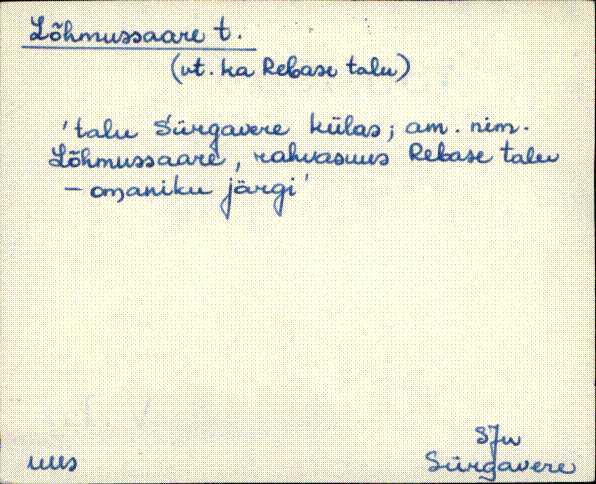 Lõhmussaare t.
(vt. ka Rebase talu)
'talu Sürgavere külas; am. nim.
Lõhmussaare, rahvasuus Rebase talu
– omaniku järgi'
SJn
uus
Sürgavere